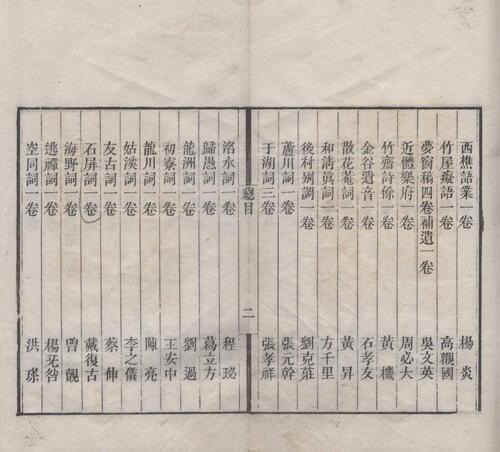 西樵語業一卷 楊炎
竹屋癡語一卷 高觀國
夢窗稿四卷補遺一卷 吳文英
近體樂府一卷 周必大
竹齋詩餘一卷 黃機
金谷遺音一卷 石孝友
散花菴詞一卷 黃昇
和清眞詞一卷 方千里
後村別調一卷 劉克莊
蘆川詞一卷 張元幹
于湖詞三卷 張孝祥
總目 二
洺水詞一卷 程珌
歸愚詞一卷 葛立方
龍洲詞一卷 劉過
初寮詞一卷 王安中
龍川詞一卷 陳亮
姑溪詞一卷 李之儀
友古詞一卷 蔡伸
石屏詞一卷 戴復古
海野詞一卷 曾覿
逃禪詞一卷 楊旡咎
空同詞一卷 洪瑹